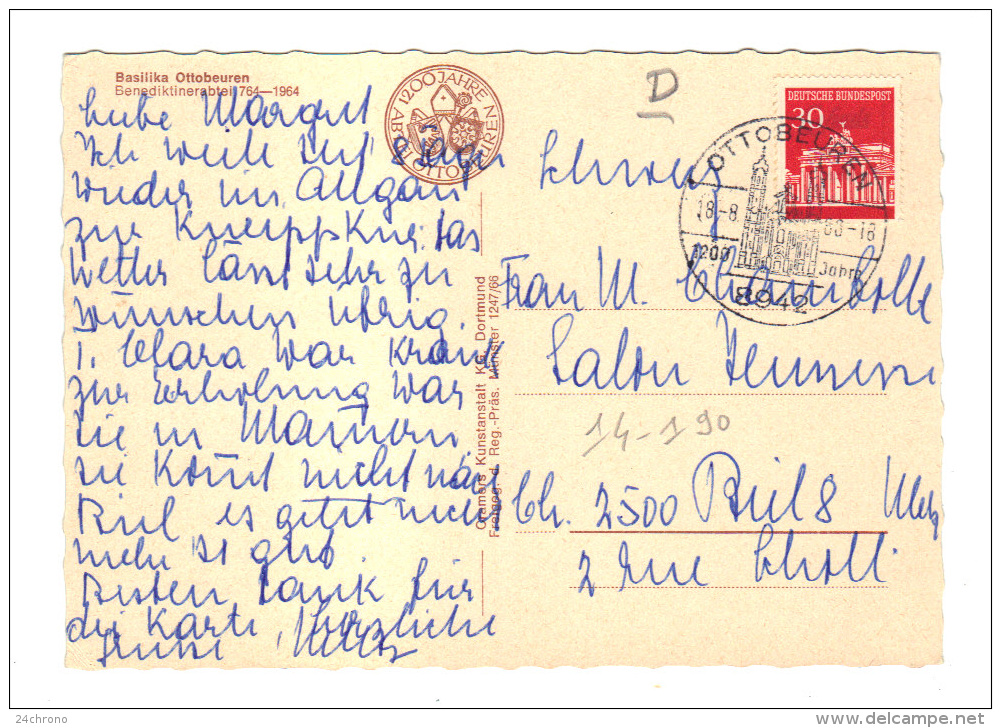 Basilika Ottobeuren
Benediktinerabtei 764—1964
1200 JAHRE
ABTEI OTTOBEUREN
Liebe Margrit
Ich weile seit
wieder im Allgäu
zur Kneippkur. das
Wetter lässt sehr zu
wünschen übrig.
T. Clara war krank
zur Erholung war
sie in
sie kommt nicht nach
Biel es geht nicht
mehr so gut
Besten Dank für
die Karte, herzliche
Grüsse,
Cramers Kunstanstalt KG. Dortmund
Freigeg. d. Reg.-Präs. Münster 1247/66
D
DEUTSCHE BUNDESPOST
30
OTTOBEUREN
18-8
-18
1200 Jahre
8942
Schweiz
Frau M.
Salon
14-190
Ch. 2500 Biel 8
2 Rue Scholl
24chrono
delcampe.net